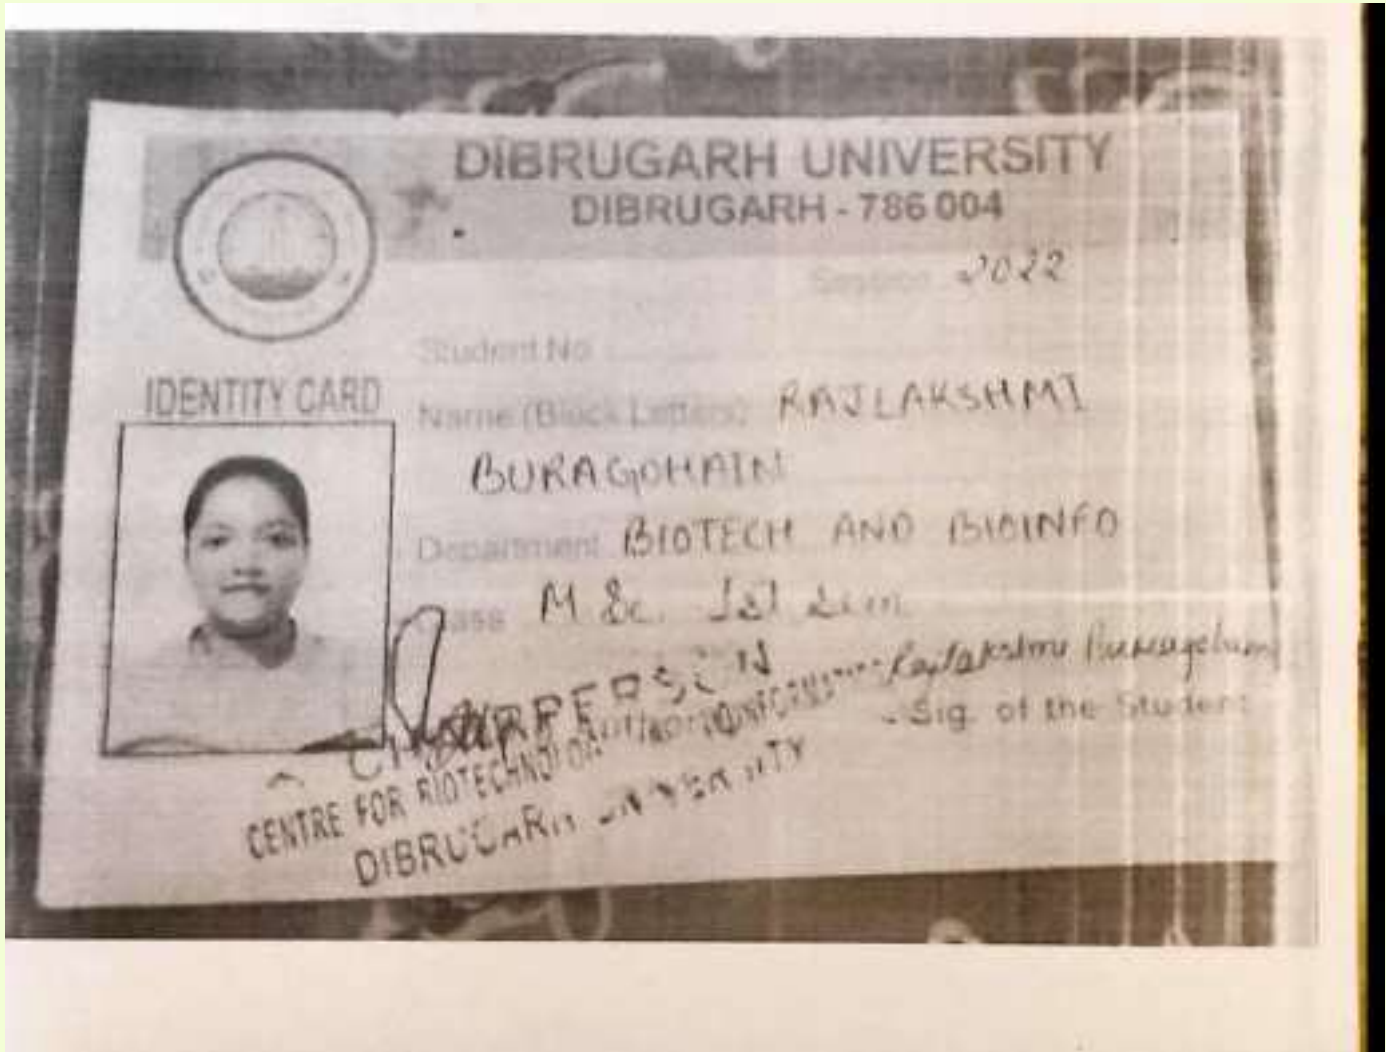 DIBRUGARH UNIVERSITY
DIBRUGARH - 786 004
Session 2022
Student No
IDENTITY CARD
Name (Block Letters) RAJLAKSHMI
BURAGOHAIN
Department BIOTECH AND BIOINFO
Class M.Sc. 1st Sem
Rajlakshmi Buragohain
Sig. of the Student
CHAIRPERSON
CENTRE FOR BIOTECHNOLOGY
DIBRUGARH UNIVERSITY